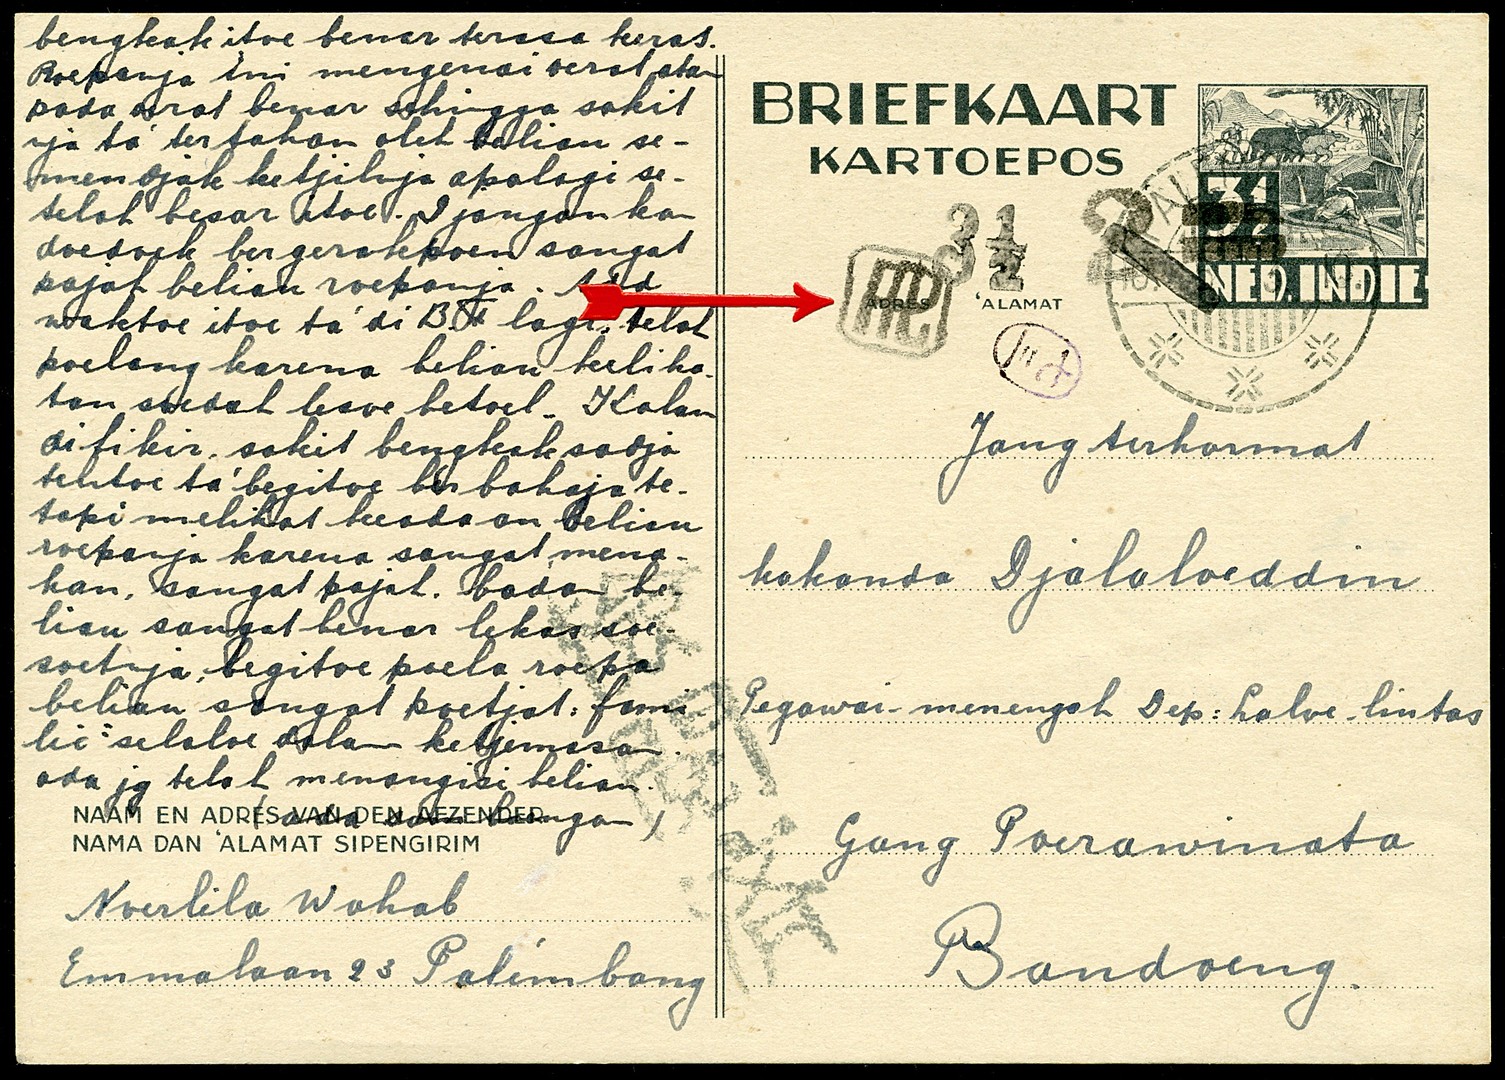 bengkak itoe benar terasa keras.
Roepanja ini mengenai oerat atau
pada oerat benar sehingga sakit
nja ta' tertahan oleh belian se-
mendjak ketjilnja apalagi se-
telah besar itoe. Djangan ka
doedoek bergerakpoen sangat
pajah belian roepanja. Ada
waktoe itoe ta' di B.A lagi, telah
poelang karena belian keliha-
tan soedah lesoe betoel. Kalau
difikir, sakit bengkak sadja
tentoe ta' begitoe berbahaja te-
tapi melihat keadaan belian
roepanja karena sangat mena-
han, sangat pajah. Badan be-
liau sangat benar lekas soe-
soetnja, begitoe poela roepa
belian sangat poetjat: fami
lie selaloe dalam ketjemasan.
ada jg telah menangisi belian.
NAAM EN ADRES VAN DEN AFZENDER
NAMA DAN 'ALAMAT SIPENGIRIM
Noerlela Wahab
Emmalaan 23 Palémbang
BRIEFKAART
KARTOEPOS
3½
3½
NED. INDIE
ADRES 'ALAMAT
Jang terhormat
kakanda Djalaloeddin
Pegawai-menengah Dep: Laloe-lintas
Gang Poerawinata
Bandoeng.